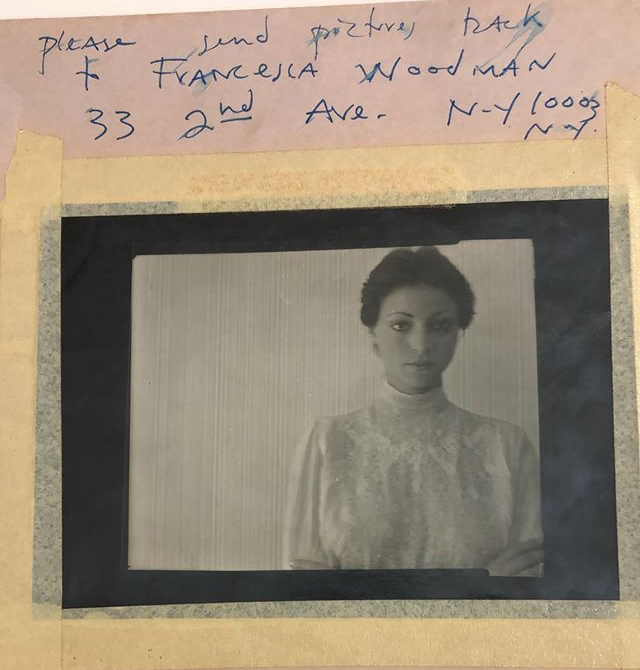 please send pictures back
to Francesca Woodman
33 2nd Ave. N-Y 10003
N-Y.